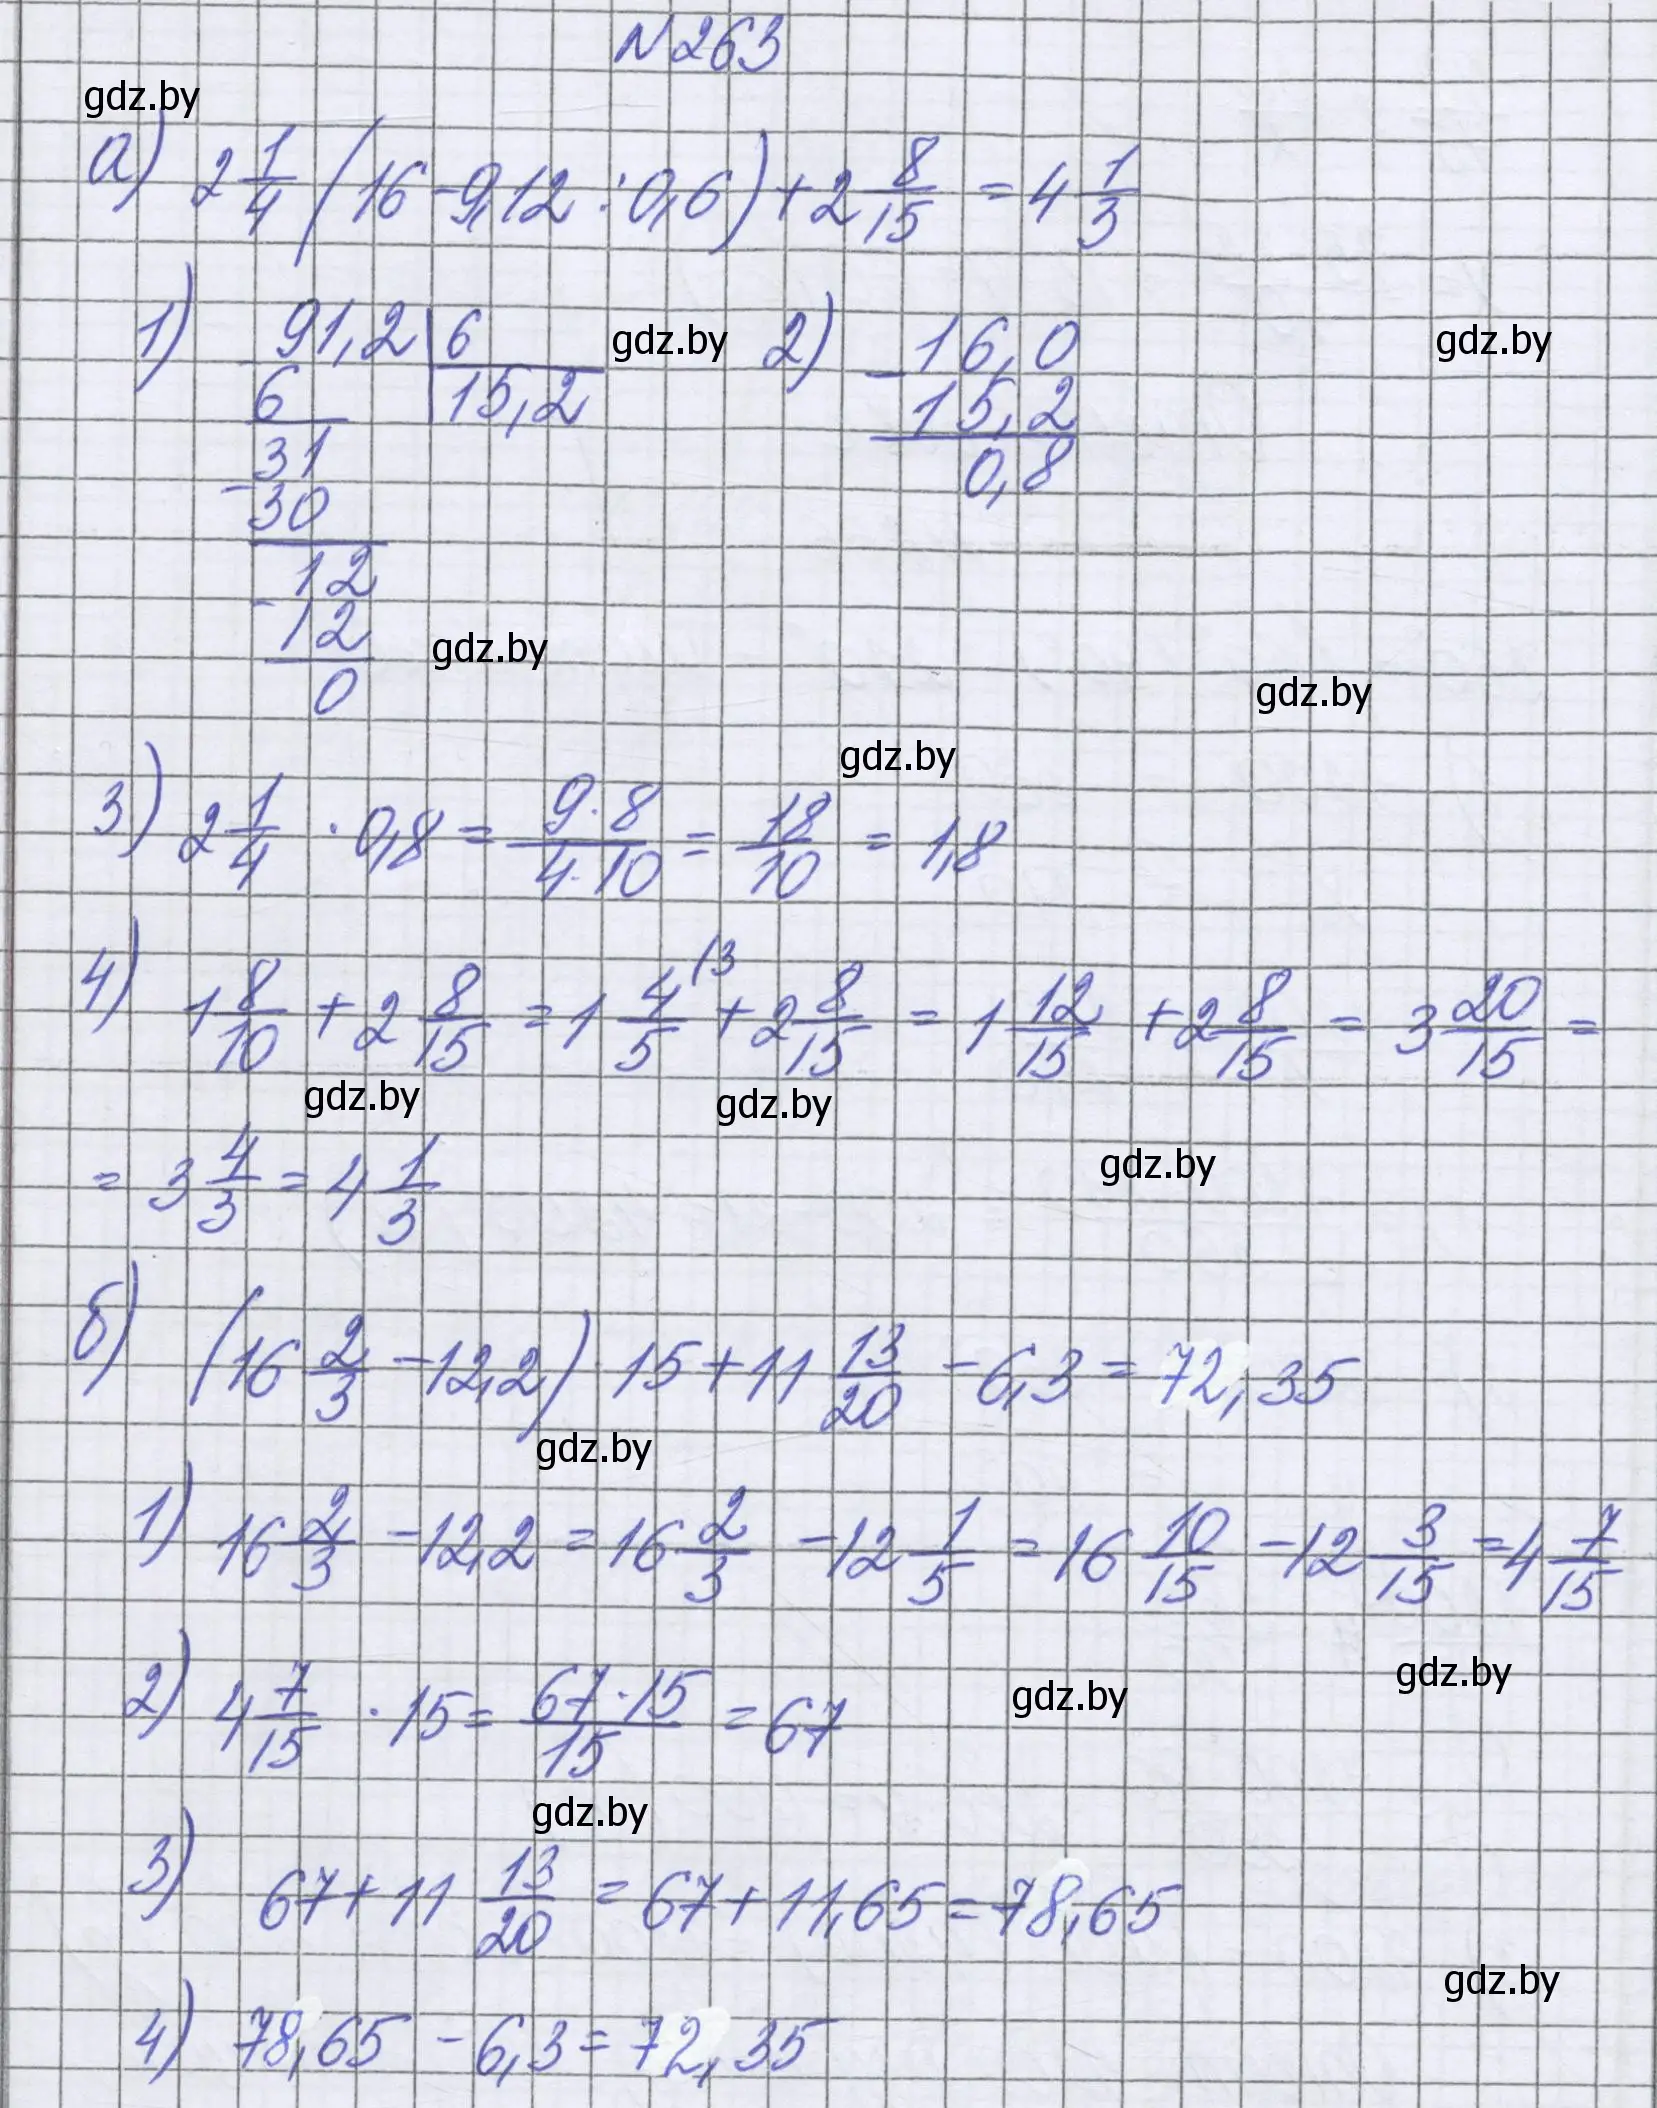 N263
gdz.by
а) 2 1/4 (16 - 9,12 : 0,6) + 2 8/15 = 4 1/3
1) 91,2 | 6
6 | 15,2
31
- 30
12
- 12
0
gdz.by
2) - 16,0
15,2
0,8
gdz.by
gdz.by
gdz.by
gdz.by
3) 2 1/4 · 0,8 = 9·8/4·10 = 18/10 = 1,8
4) 1 8/10 + 2 8/15 = 1 4/5 (3 + 2 8/15 = 1 12/15 + 2 8/15 = 3 20/15 =
gdz.by gdz.by
gdz.by
= 3 4/3 = 4 1/3
б) (16 2/3 - 12,2) · 15 + 11 13/20 - 6,3 = 72,35
gdz.by
1) 16 2/3 - 12,2 = 16 2/3 - 12 1/5 = 16 10/15 - 12 3/15 = 4 7/15
2) 4 7/15 · 15 = 67·15/15 = 67
gdz.by gdz.by
gdz.by
3) 67 + 11 13/20 = 67 + 11,65 = 78,65
gdz.by
4) 78,65 - 6,3 = 72,35